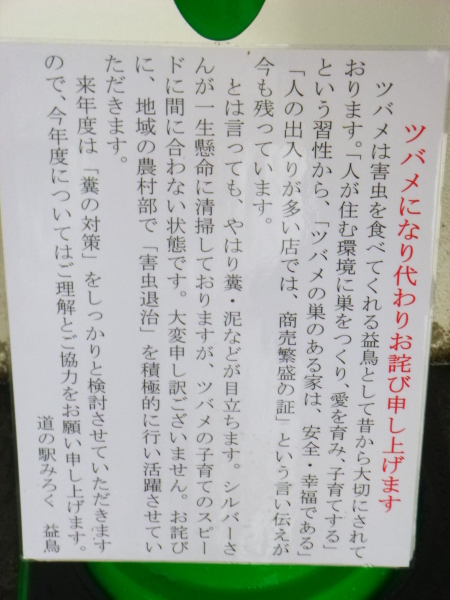 ツバメになり代わりお詫び申し上げます
ツバメは害虫を食べてくれる益鳥として昔から大切にされて
おります。「人が住む環境に巣をつくり、愛を育み、子育てする」
という習性から、「ツバメの巣のある家は、安全・幸福である」
「人の出入りが多い店では、商売繁盛の証」という言い伝えが
今も残っています。
とは言っても、やはり糞・泥などが目立ちます。シルバーさ
んが一生懸命に清掃しておりますが、ツバメの子育てのスピー
ドに間に合わない状態です。大変申し訳ございません。お詫び
に、地域の農村部で「害虫退治」を積極的に行い活躍させてい
ただきます。
来年度は「糞の対策」をしっかりと検討させていただきます
ので、今年度についてはご理解とご協力をお願い申し上げます。
道の駅みろく　益鳥